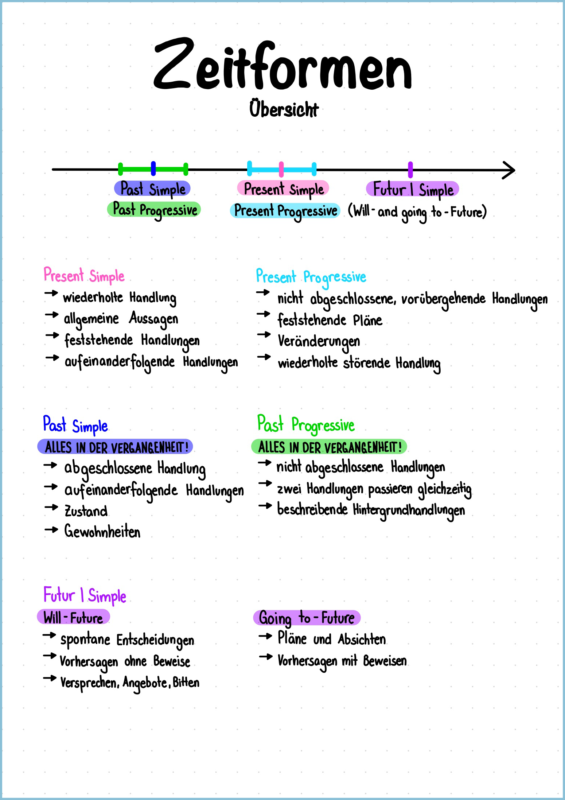 Zeitformen
Übersicht
Past Simple
Past Progressive
Present Simple
Present Progressive
Futur I Simple
(Will- and going to - Future)
Present Simple
→ wiederholte Handlung
→ allgemeine Aussagen
→ feststehende Handlungen
→ aufeinanderfolgende Handlungen
Present Progressive
→ nicht abgeschlossene, vorübergehende Handlungen
→ feststehende Pläne
→ Veränderungen
→ wiederholte störende Handlung
Past Simple
ALLES IN DER VERGANGENHEIT!
→ abgeschlossene Handlung
→ aufeinanderfolgende Handlungen
→ Zustand
→ Gewohnheiten
Past Progressive
ALLES IN DER VERGANGENHEIT!
→ nicht abgeschlossene Handlungen
→ zwei Handlungen passieren gleichzeitig
→ beschreibende Hintergrundhandlungen
Futur I Simple
Will - Future
→ spontane Entscheidungen
→ Vorhersagen ohne Beweise
→ Versprechen, Angebote, Bitten
Going to - Future
→ Pläne und Absichten
→ Vorhersagen mit Beweisen